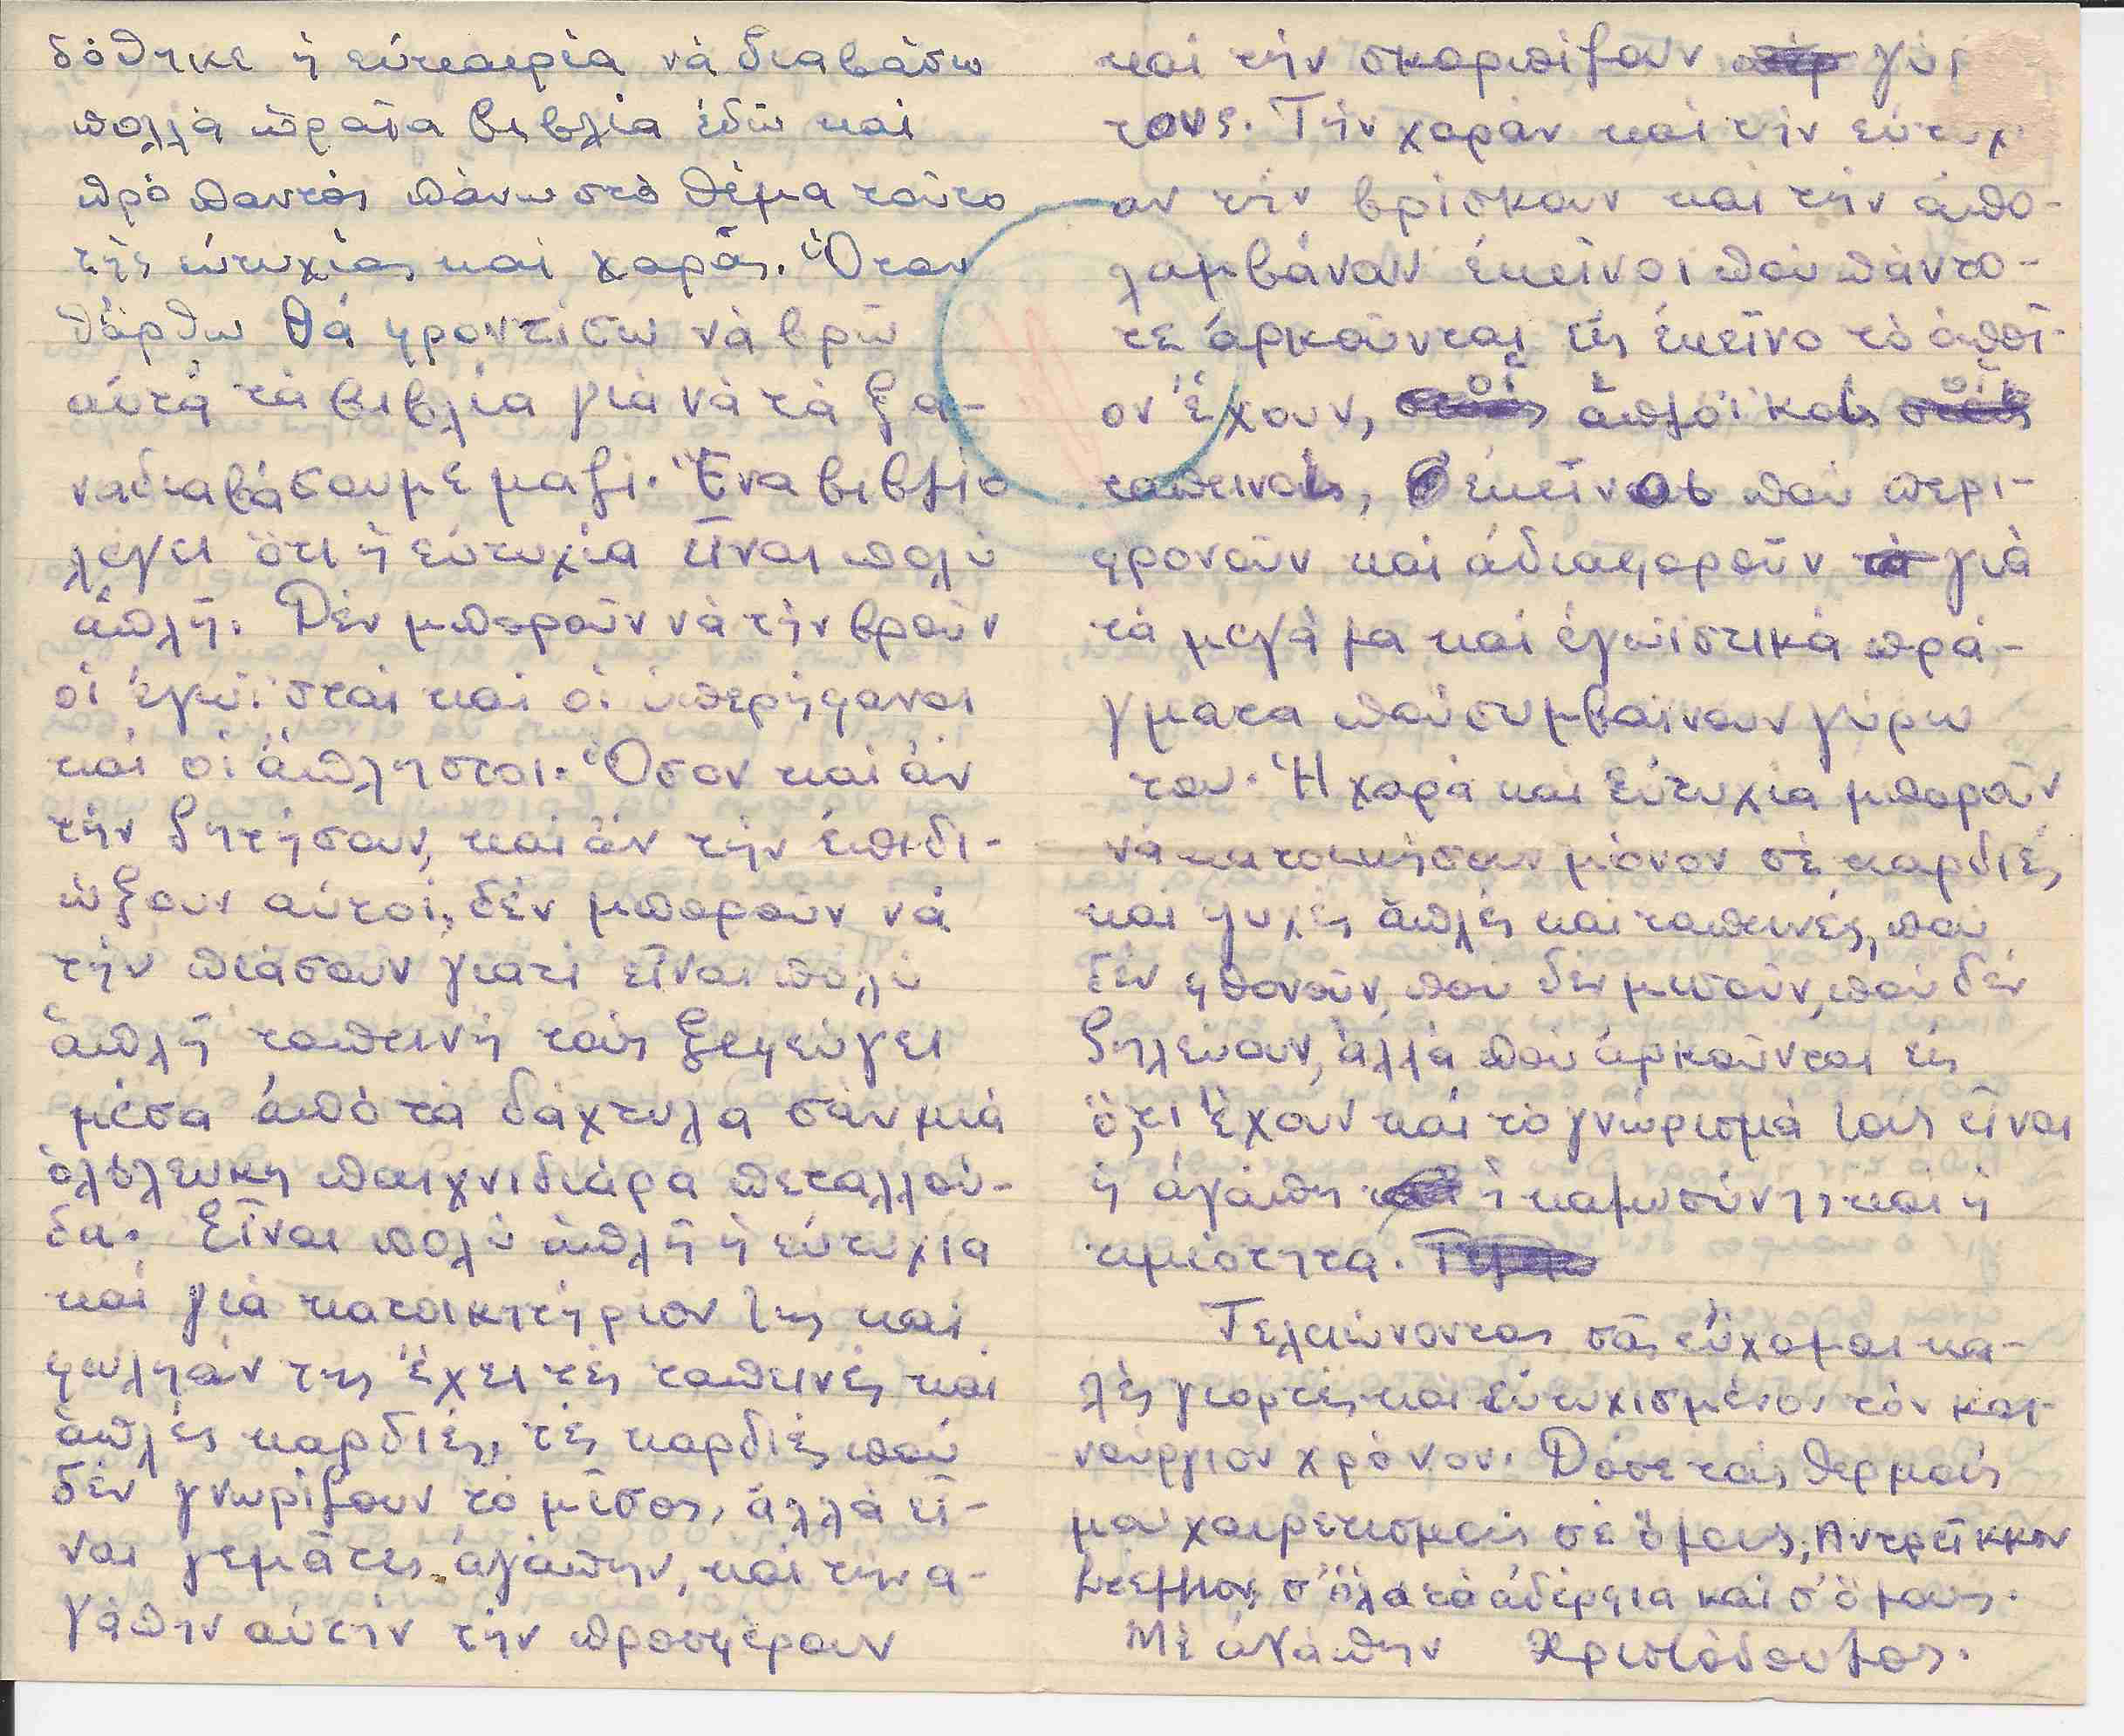 δόθηκε ἡ εὐκαιρία νὰ διαβάσω
πολλὰ ὡραῖα βιβλία ἐδῶ καὶ
πρὸ παντὸς πάνω στὸ θέμα τοῦτο
τῆς εὐτυχίας καὶ χαρᾶς. Ὅταν
θἄρθω θὰ φροντίσω νὰ βρῶ
αὐτὰ τὰ βιβλία γιὰ νὰ τὰ ξα-
ναδιαβάσουμε μαζί. Ἕνα βιβλίο
λέγει ὅτι ἡ εὐτυχία εἶναι πολὺ
ἁπλῆ. Δὲν μποροῦν νὰ τὴν βροῦν
οἱ ἐγωϊσταὶ καὶ οἱ ὑπερήφανοι
καὶ οἱ ἄπληστοι. Ὅσον καὶ ἂν
τὴν ζητήσουν, καὶ ἂν τὴν ἐπιδι-
ώξουν αὐτοί, δὲν μποροῦν νὰ
τὴν πιάσουν γιατὶ εἶναι πολὺ
ἁπλῆ ταπεινὴ τοὺς ξεφεύγει
μέσα ἀπὸ τὰ δάχτυλα σὰν μιὰ
ὁλόλευκη παιχνιδιάρα πεταλλού-
δα. Εἶναι πολὺ ἁπλῆ ἡ εὐτυχία
καὶ γιὰ κατοικητήριον της καὶ
φωληάν της ἔχει τὲς ταπεινὲς καὶ
ἁπλὲς καρδιές, τὲς καρδιὲς ποὺ
δὲν γνωρίζουν τὸ μῖσος, ἀλλὰ εἶ-
ναι γεμᾶτες ἀγάπην, καὶ τὴν ἀ-
γάπην αὐτὴν τὴν προσφέρουν
καὶ τὴν σκορπίζουν γύρ
τους. Τὴν χαρὰν καὶ τὴν εὐτυχ
αν τὴν βρίσκουν καὶ τὴν ἀπο-
λαμβάνουν ἐκεῖνοι ποὺ πάντο-
τε ἀρκοῦνται εἰς ἐκεῖνο τὸ ὁποῖ-
ον ἔχουν, οἱ ἁπλοϊκοὶ οἱ
ταπεινοί, ἐκεῖνοι ποὺ περι-
φρονοῦν καὶ ἀδιαφοροῦν γιὰ
τὰ μεγάλα καὶ ἐγωϊστικὰ πρά-
γματα ποὺ συμβαίνουν γύρω
του. Ἡ χαρὰ καὶ εὐτυχία μποροῦν
νὰ κατοικήσουν μόνον σὲ καρδιὲς
καὶ ψυχὲς ἁπλὲς καὶ ταπεινές, ποὺ
δὲν φθονοῦν, ποὺ δὲν μισοῦν, ποὺ δὲν
ζηλεύουν, ἀλλὰ ποὺ ἀρκοῦνται εἰς
ὅ,τι ἔχουν καὶ τὸ γνώρισμά τους εἶναι
ἡ ἀγάπη ἡ καλωσύνη, καὶ ἡ
τιμιότητα.
Τελειώνοντας σᾶς εὔχομαι κα-
λὲς γιορτὲς καὶ εὐτυχισμένον τὸν και-
νούργιον χρόνον. Δόσε τοὺς θερμούς
μου χαιρετισμοὺς σὲ ὅλους, Ἀντρεῖκκον
Στέλλιον, σ' ὅλα τὰ ἀδέρφια καὶ σ' ὅλους.
Μὲ ἀγάπην Χριστόδουλος.